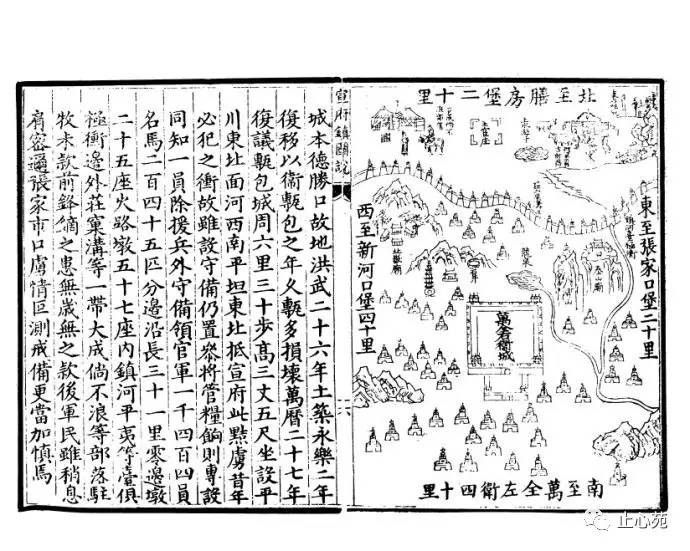 北至膳房堡二十里
東至張家口堡二十里
泰山廟
萬全衛城
西至新河口堡四十里
南至萬全左衛四十里
宣府鎮圖說
城本德勝口故地洪武二十六年土築永樂二年
復移以衛甎包之年久甎多損壞萬曆二十七年
復議甎包城周六里三十步高三丈五尺坐設平
川東北面河西南平坦東北抵宣府此黠虜昔年
必犯之衝故雖設守備仍置叅將管糧餉則專設
同知一員除援兵外守備領官軍一千四百四員
名馬二百四十五匹分邊沿長三十一里零邊墩
二十五座火路墩五十七座內鎮河平夷等臺俱
極衝邊外莊窠溝等一帶大成倘不浪等部落駐
牧未款前鋒鏑之患無歲無之款後軍民雖稍息
肩容邇張家市口虜情叵測戒備更當加慎焉
止心苑